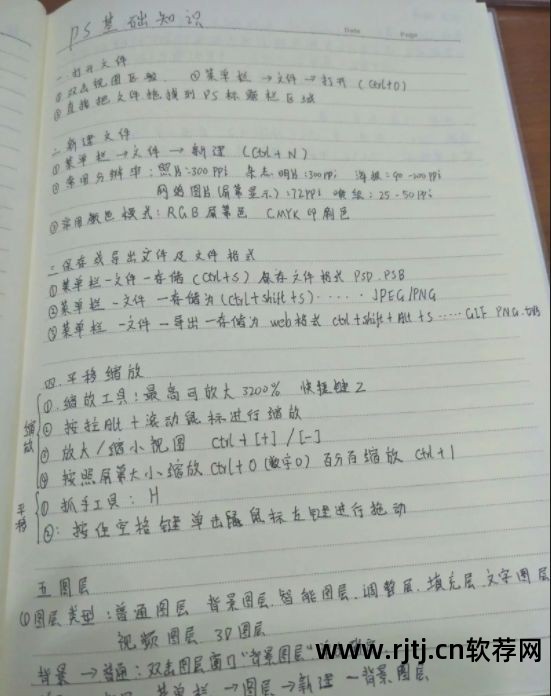 PS基础知识
Date Page
一.打开文件
①双击视图区域. ②菜单栏→文件→打开(Ctrl+O)
③直接把文件拖拽到PS标题栏区域
二.新建文件
①菜单栏→文件→新建(Ctrl+N)
②常用分辨率:照片:300PPi 杂志.明片:300PPi 海报:90-200PPi
网络图片(屏幕显示):72PPi 喷绘:25-50PPi
③常用颜色模式:RGB屏幕色 CMYK印刷色
三.保存或导出文件及文件格式
①菜单栏-文件-存储(Ctrl+S)保存文件格式PSD.PSB
②菜单栏-文件-存储为(Ctrl+shift+S)······JPEG/PNG
③菜单栏-文件-导出-存储为web格式 ctrl+shift+Alt+S······GIF PNG.
四.平移缩放
缩放
①.缩放工具:最高可放大3200% 快捷键Z
②按Alt+滚动鼠标进行缩放
③放大/缩小视图 Ctrl+[+]/[-]
④按照屏幕大小缩放Ctrl+0(数字0)百分百缩放 Ctrl+1
平移
①抓手工具:H
②:按住空格键单击鼠标左键进行拖动
五图层
(1)图层类型:普通图层 背景图层.智能图层.调整层.填充层.文字图层
视频图层 3D图层
背景→普通:双击图层窗口"背景图层"
菜单栏→图层→新建-背景图层
www.rjtj.cn软荐网